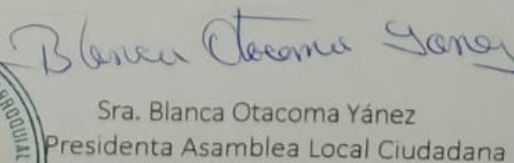 Blanca Otacoma Yanez
Sra. Blanca Otacoma Yánez
Presidenta Asamblea Local Ciudadana
RROQUIAL